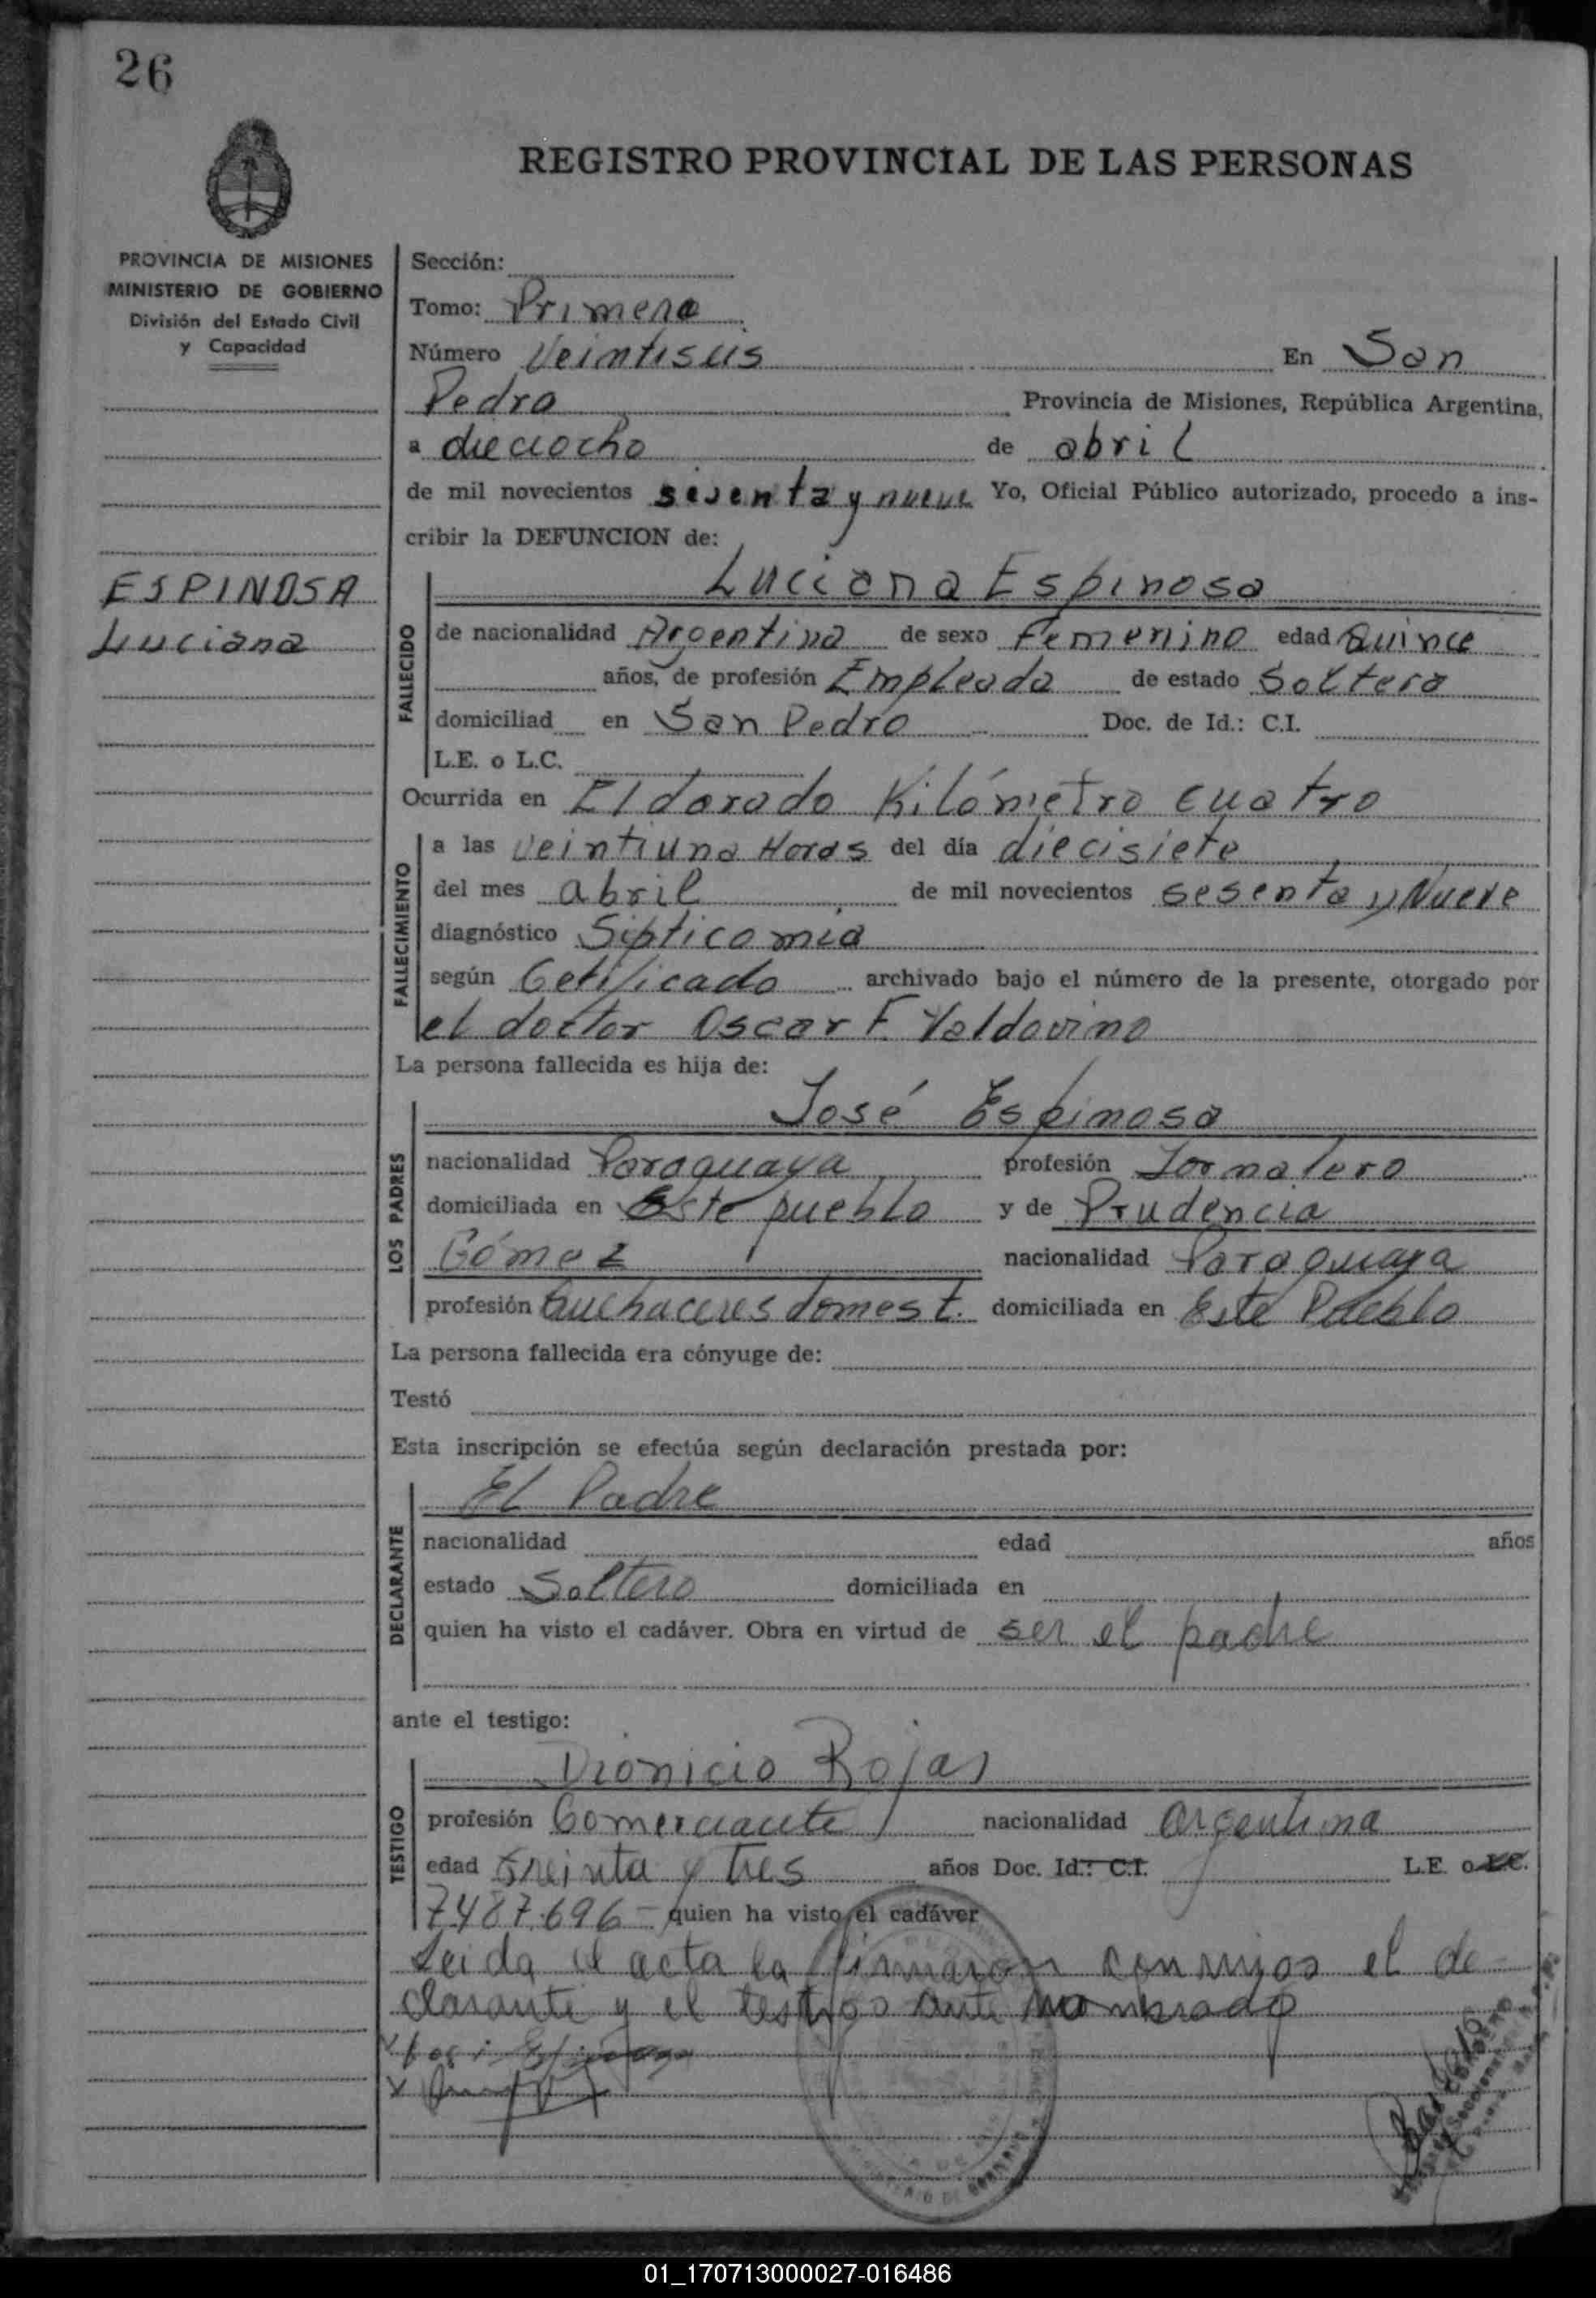 26
REGISTRO PROVINCIAL DE LAS PERSONAS
PROVINCIA DE MISIONES
MINISTERIO DE GOBIERNO
División del Estado Civil
y Capacidad
ESPINOSA
Luciana
Sección:
Tomo: Primero
Número Veintiseis En San
Pedro Provincia de Misiones, República Argentina,
a dieciocho de abril
de mil novecientos sesenta y nueve Yo, Oficial Público autorizado, procedo a ins-
cribir la DEFUNCION de:
Luciana Espinosa
FALLECIDO
de nacionalidad Argentina de sexo Femenino edad Quince
años, de profesión Empleada de estado Soltera
domiciliad en San Pedro Doc. de Id.: C.I.
L.E. o L.C.
Ocurrida en Eldorado Kilómetro cuatro
FALLECIMIENTO
a las Veintiuna Horas del día diecisiete
del mes abril de mil novecientos sesenta y Nueve
diagnóstico Septicomia
según Cetificado archivado bajo el número de la presente, otorgado por
el doctor Oscar F. Valdovino
La persona fallecida es hija de:
José Espinosa
LOS PADRES
nacionalidad Paraguaya profesión Jornalero
domiciliada en Este pueblo y de Prudencia
Gómez nacionalidad Paraguaya
profesión Quehaceres domest. domiciliada en Este Pueblo
La persona fallecida era cónyuge de:
Testó
Esta inscripción se efectúa según declaración prestada por:
El Padre
DECLARANTE
nacionalidad edad años
estado Soltero domiciliada en
quien ha visto el cadáver. Obra en virtud de ser el padre
ante el testigo:
Dionicio Rojas
TESTIGO
profesión Comerciante nacionalidad argentina
edad treinta y tres años Doc. Id.: C.I. L.E. o L.C.
7.487.696- quien ha visto el cadáver
Leida el acta la firmaron conmigo el de-
clarante y el testigo ante nombrado
01_170713000027-016486